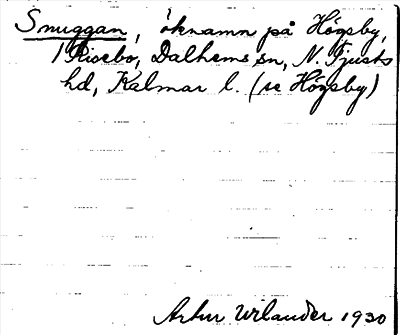 Snuggan, öknamn på Högsby,
1 Risebo, Dalhems sn, N. Tjusts
hd, Kalmar l. (se Högsby)
Artur Wilander 1930